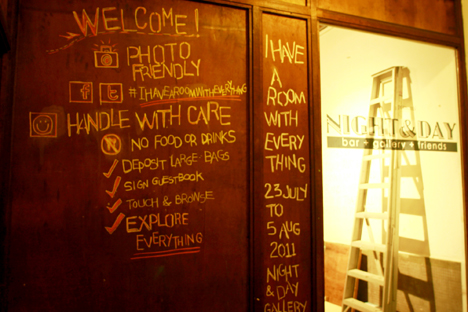 WELCOME!
PHOTO
FRIENDLY
f t #IHAVEAROOMWITHEVERYTHING
HANDLE WITH CARE
NO FOOD OR DRINKS
DEPOSIT LARGE BAGS
SIGN GUESTBOOK
TOUCH & BROWSE
EXPLORE
EVERYTHING
I HAVE
A
ROOM
WITH
EVERY
THING
23 JULY
TO
5 AUG
2011
NIGHT
& DAY
GALLERY
NIGHT&DAY
bar + gallery + friends